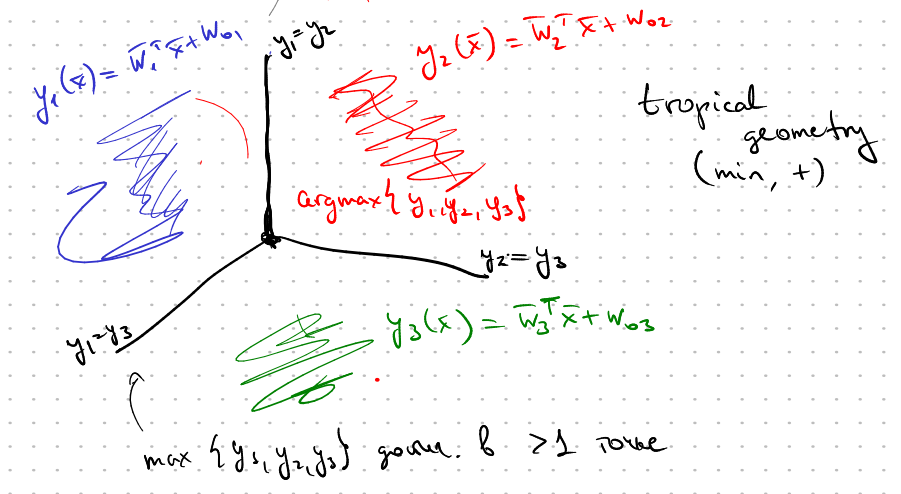 y₁(x̄) = w̄₁ᵀx̄ + w₀₁
y₁=y₂
y₂(x̄) = w̄₂ᵀx̄ + w₀₂
tropical
geometry
(min, +)
argmax{y₁, y₂, y₃}
y₂=y₃
y₁=y₃
y₃(x̄) = w̄₃ᵀx̄ + w₀₃
max {y₁, y₂, y₃} дости. в >1 точке